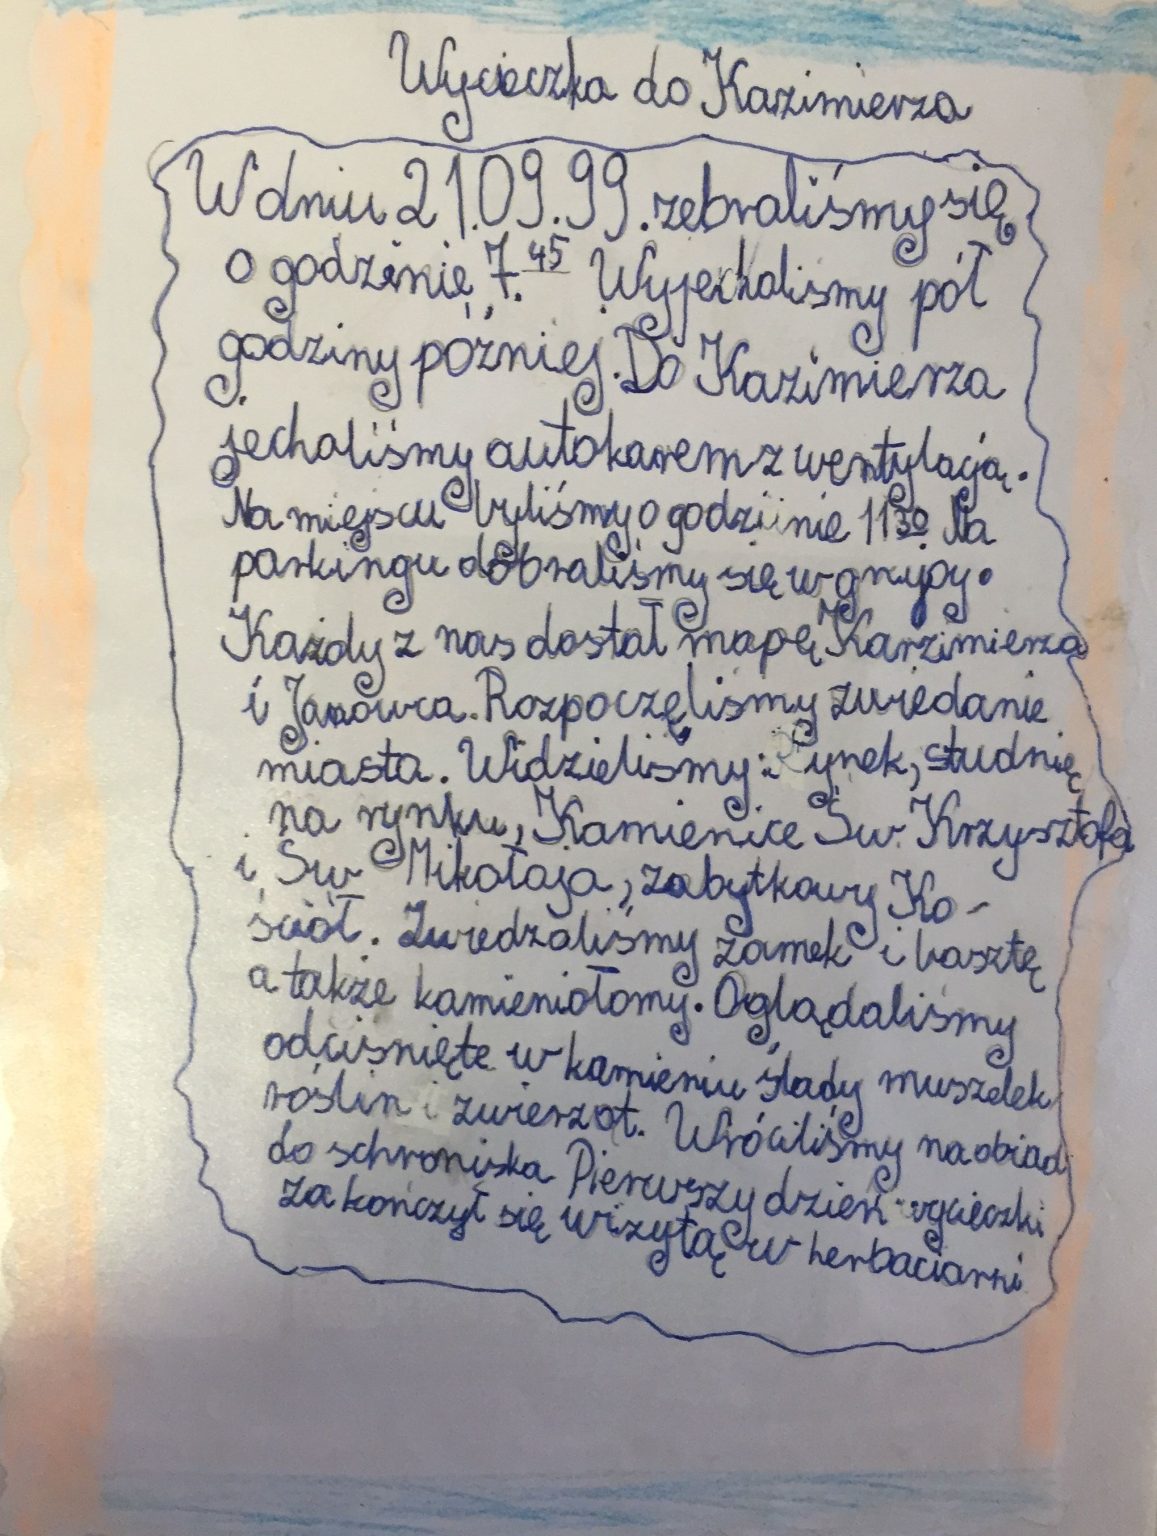 Wycieczka do Kazimierza
W dniu 21.09.99. zebraliśmy się
o godzinie 7.45 Wyjechaliśmy pół
godziny później. Do Kazimierza
jechaliśmy autokarem z wentylacją.
Na miejscu byliśmy o godzinie 11 30. Na
parkingu dobraliśmy się w grupy.
Każdy z nas dostał mapę Kazimierza
i Janowca. Rozpoczęliśmy zwiedanie
miasta. Widzieliśmy: Rynek, studnię
na rynku, Kamienice Św. Krzysztofa
i Św Mikołaja, zabytkowy Ko-
ściół. Zwiedzaliśmy zamek i basztę
a także kamieniołomy. Oglądaliśmy
odciśnięte w kamieniu ślady muszelek
roślin i zwierząt. Wróciliśmy na obiad
do schroniska Pierwszy dzień wycieczki
zakończył się wizytą w herbaciarni